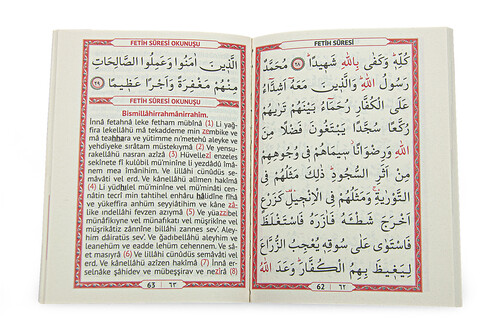 FETİH SÛRESİ
كُلِّه۪ وَكَفٰى بِاللّٰهِ شَه۪يدًاۜ ﴿٢٨﴾ مُحَمَّدٌ
رَسُولُ اللّٰهِۜ وَالَّذ۪ينَ مَعَهُٓ اَشِدَّٓاءُ
عَلَى الْكُفَّارِ رُحَمَٓاءُ بَيْنَهُمْ تَرٰيهُمْ
رُكَّعًا سُجَّدًا يَبْتَغُونَ فَضْلًا مِنَ
اللّٰهِ وَرِضْوَانًاۘ س۪يمَاهُمْ ف۪ي وُجُوهِهِمْ
مِنْ اَثَرِ السُّجُودِۜ ذٰلِكَ مَثَلُهُمْ فِي
التَّوْرٰيةِۚ وَمَثَلُهُمْ فِي الْاِنْج۪يلِ۠ كَزَرْعٍ
اَخْرَجَ شَطْـَٔهُ فَاٰزَرَهُ فَاسْتَغْلَظَ
فَاسْتَوٰى عَلٰى سُوقِه۪ يُعْجِبُ الزُّرَّاعَ
لِيَغ۪يظَ بِهِمُ الْكُفَّارَۜ وَعَدَ اللّٰهُ
62 ٦٢
FETİH SÛRESİ OKUNUŞU
الَّذ۪ينَ اٰمَنُوا وَعَمِلُوا الصَّالِحَاتِ
مِنْهُمْ مَغْفِرَةً وَاَجْرًا عَظ۪يمًا ﴿٢٩﴾
FETİH SÛRESİ OKUNUŞU
Bismillâhirrahmânirrahîm.
İnnâ fetahnâ leke fetham mübînâ (1) Li yağ-
fira lekellâhü mâ tekaddeme min zembike ve
mâ teahhara ve yütimme ni'metehû aleyke ve
yehdiyeke sırâtam müstekıymâ (2) Ve yensu-
rakellâhü nasran azîzâ (3) Hüvellezî enzeles
sekînete fî kulûbil mü'minîne li yezdâdû îmâ-
nem mea îmânihim. Ve lillâhi cünûdüs semâ-
vâti vel erd. Ve kânellâhü alîmen hakîmâ
(4) Li yüdhilel mü'minîne vel mü'minâti cen-
nâtin tecrî min tahtihel enhâru hâlidîne fîhâ
ve yükeffira anhüm seyyiâtihim ve kâne zâ-
like ındellâhi fevzen azıymâ (5) Ve yüazzibel
münâfikıyne vel münâfikati vel müşrikîne vel
müşrikâtiz zânnîne billâhi zannes sev'. Aley-
him dâiratüs sev'. Ve ğadıbellâhü aleyhim ve
leanehüm ve eadde lehüm cehennem. Ve sâ-
et masıyrâ (6) Ve lillâhi cünûdüs semâvâti vel
erd. Ve kânellâhü azîzen hakîmâ (7) İnnâ er-
selnâke şâhidev ve mübeşşirav ve nezîrâ (8)
63 ٦٣